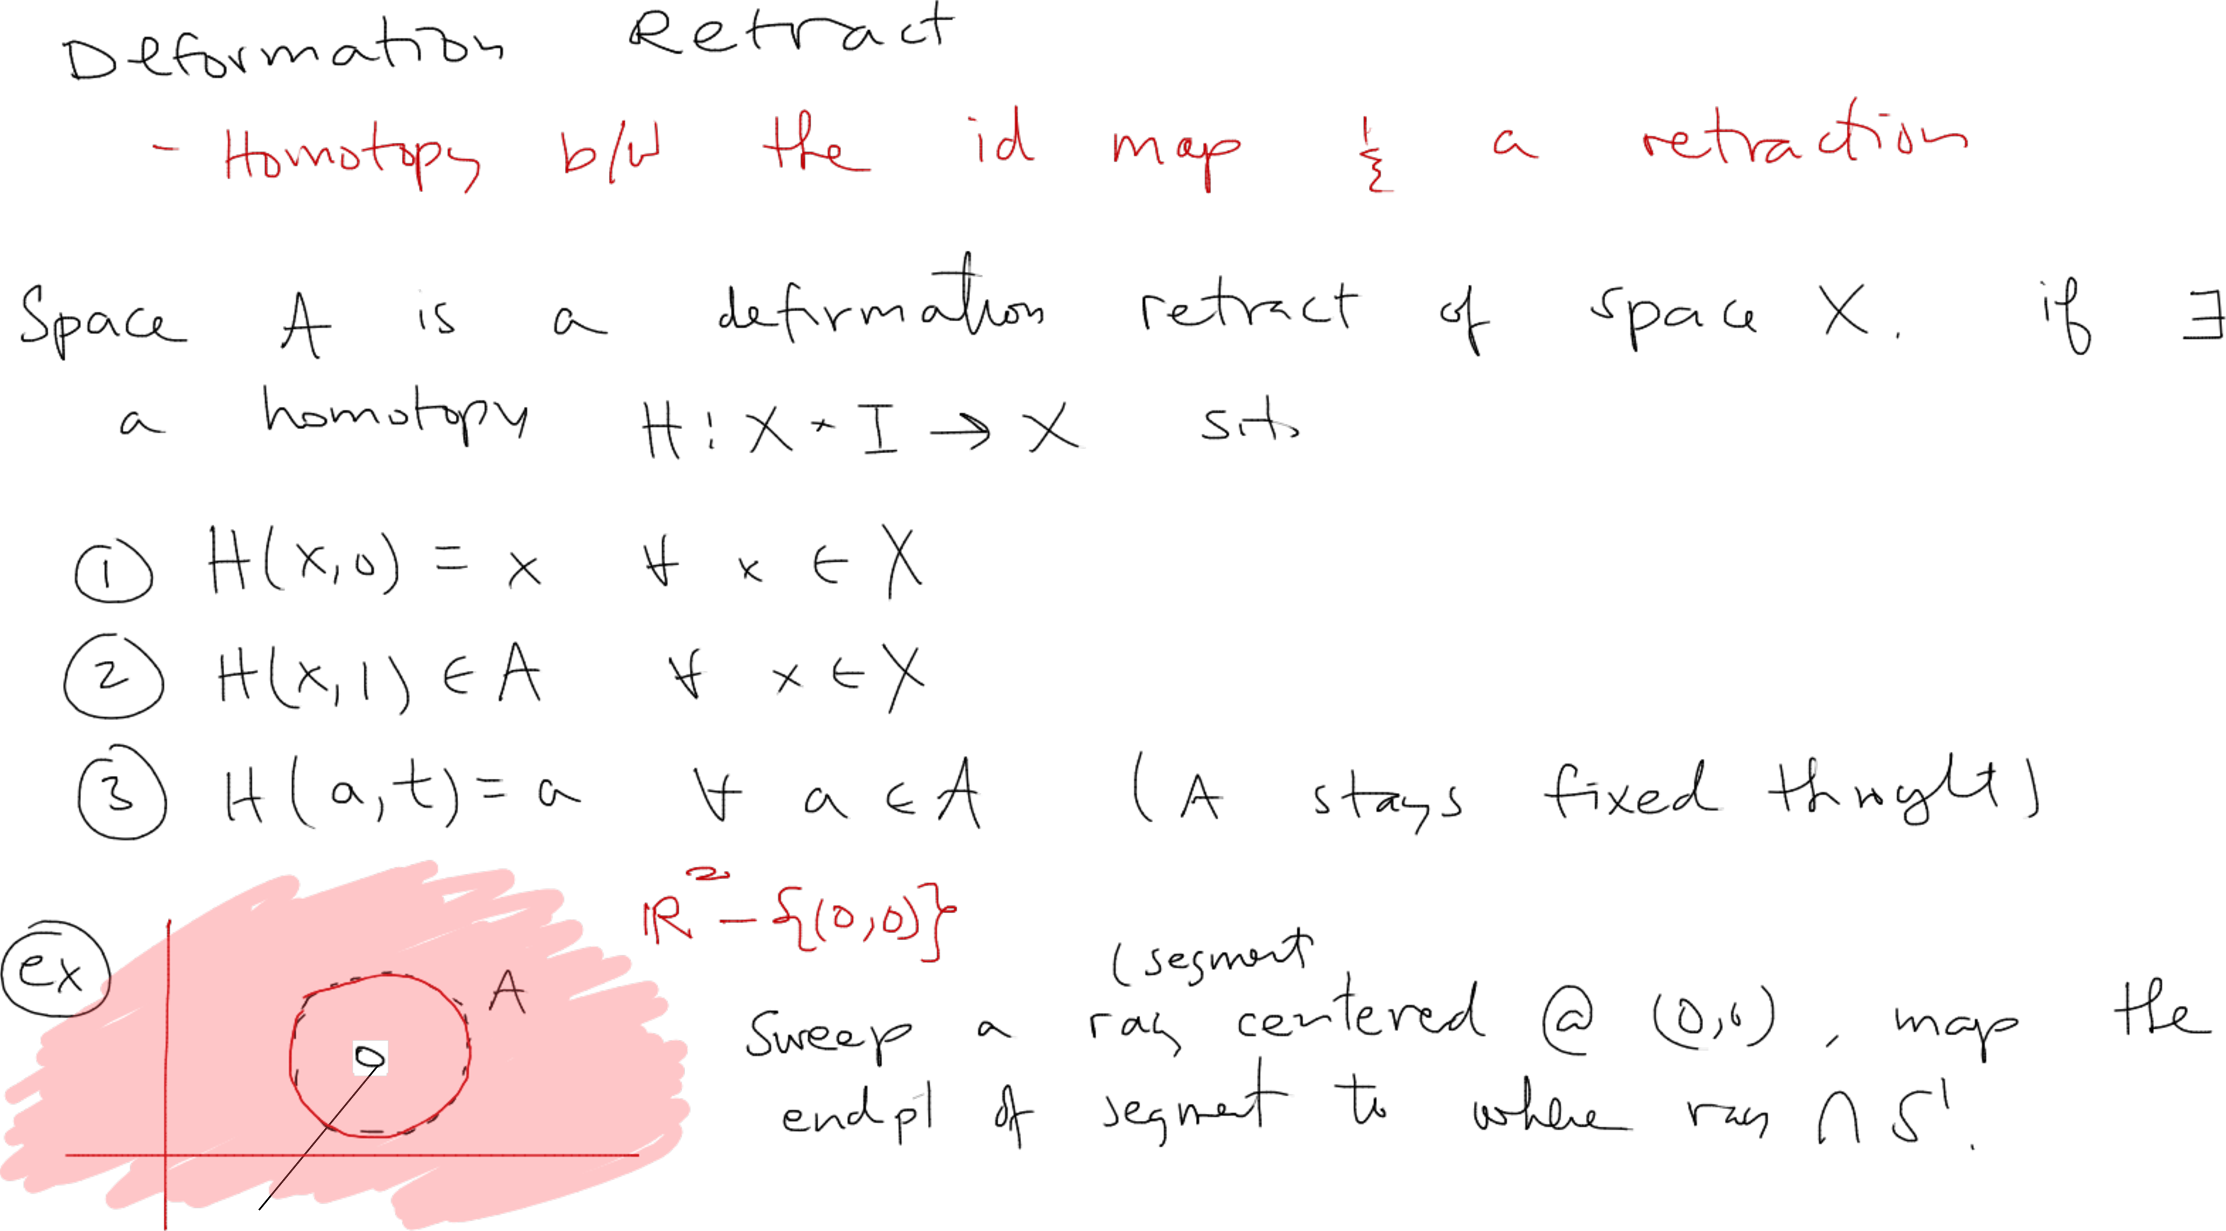 Deformation Retract
- Homotopy b/w the id map & a retraction
Space A is a deformation retract of space X. if ∃
a homotopy H : X × I → X s.t.
① H(x,0) = x ∀ x ∈ X
② H(x,1) ∈ A ∀ x ∈ X
③ H(a,t) = a ∀ a ∈ A (A stays fixed throught)
ex
A
0
ℝ² - {(0,0)}
(segment
Sweep a ray centered @ (0,0), map the
endpt of segment to where ray ∩ S¹.